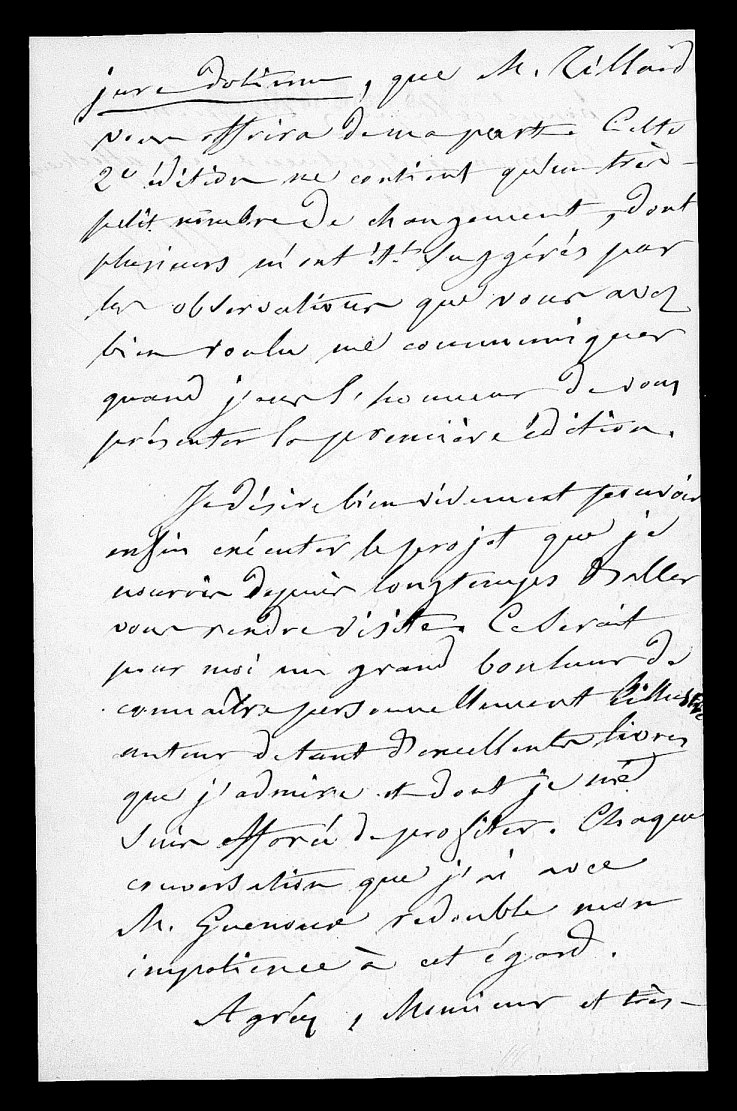 jure dotium, que M. Rillard
vous offrira de ma part. Cette
2e édition ne contient qu'un très-
petit nombre de changement, dont
plusieurs m'ont été suggérés par
les observations que vous avez
bien voulu me communiquer
quand j'eus l'honneur de vous
présenter la première édition.
Je désire bien vivement pouvoir
enfin exécuter le projet que je
nourris depuis longtemps d'aller
vous rendre visite. Ce serait
pour moi un grand bonheur de
connaître personnellement l'illustre
auteur de tant d'excellents livres
que j'admire et dont je me
suis efforcé de profiter. Chaque
conversation que j'ai avec
M. Guenoux redouble mon
impatience à cet égard.
Agréez, Monsieur et très-